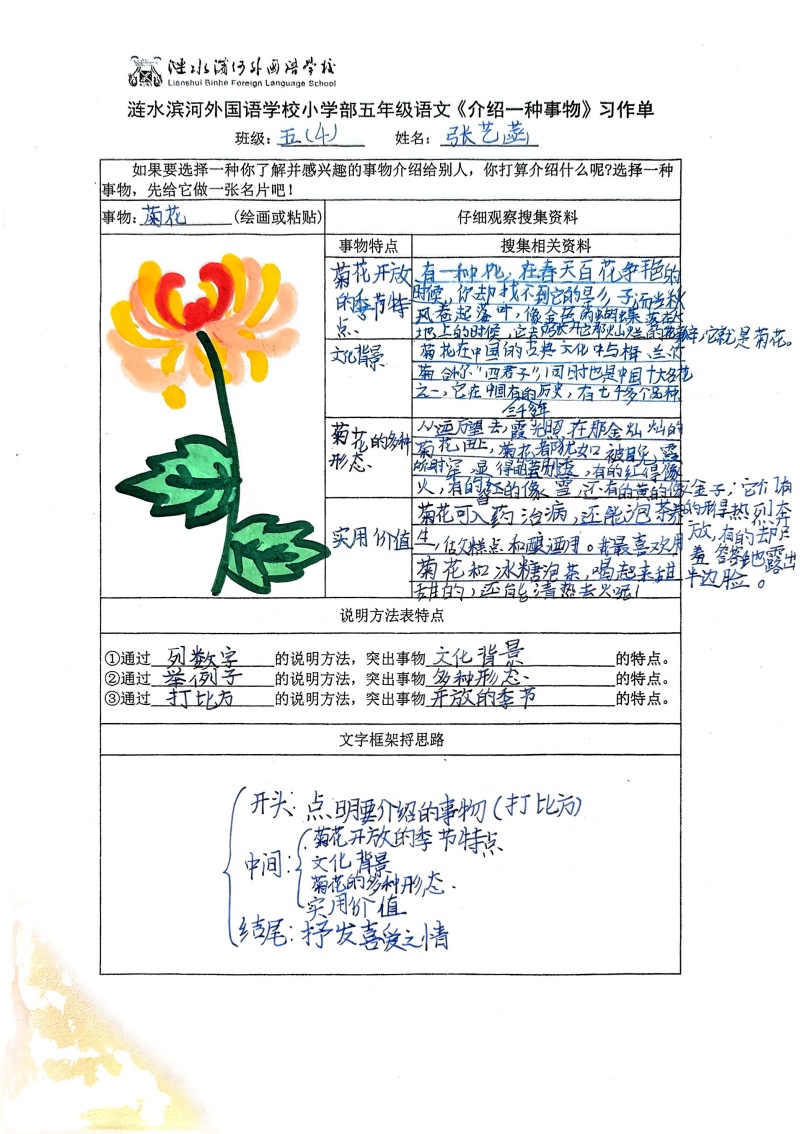 涟水滨河外国语学校
Lianshui Binhe Foreign Language School
涟水滨河外国语学校小学部五年级语文《介绍一种事物》习作单
班级：五(4) 姓名：张艺菡
如果要选择一种你了解并感兴趣的事物介绍给别人，你打算介绍什么呢?选择一种
事物，先给它做一张名片吧！
事物：菊花 (绘画或粘贴)
仔细观察搜集资料
事物特点 搜集相关资料
菊花开放
的季节特
点
有一种花，在春天百花争艳的
时候，你却找不到它的影子，而当秋
风卷起落叶，像金色的蝴蝶落在
地上的时候，它才张开它那灿烂的花瓣，它就是菊花。
文化背景
菊花在中国的古典文化中与梅、兰、竹
菊合称“四君子”，同时也是中国十大名花
之一，它在中国有三千多年的历史，有七千多个品种
菊花的多种
形态
从远方望去，霞光照在那金灿灿的
菊花田上，菊花都犹如被
显得晶莹剔透，有的红得像
火，有的白的像雪，还有的黄的像金子；它们有
的形得热烈奔
放，有的却尽
羞答答地露出
半边脸。
实用价值
菊花可入药治病，还能泡茶养
生，做糕点和酿酒。我最喜欢用
菊花和冰糖泡茶，喝起来甜
甜的，还能清热去火呢！
说明方法表特点
①通过 列数字 的说明方法，突出事物 文化背景 的特点。
②通过 举例子 的说明方法，突出事物 多种形态 的特点。
③通过 打比方 的说明方法，突出事物 开放的季节 的特点。
文字框架捋思路
开头：点明要介绍的事物(打比方)
中间：
菊花开放的季节特点
文化背景
菊花的多种形态
实用价值
结尾：抒发喜爱之情